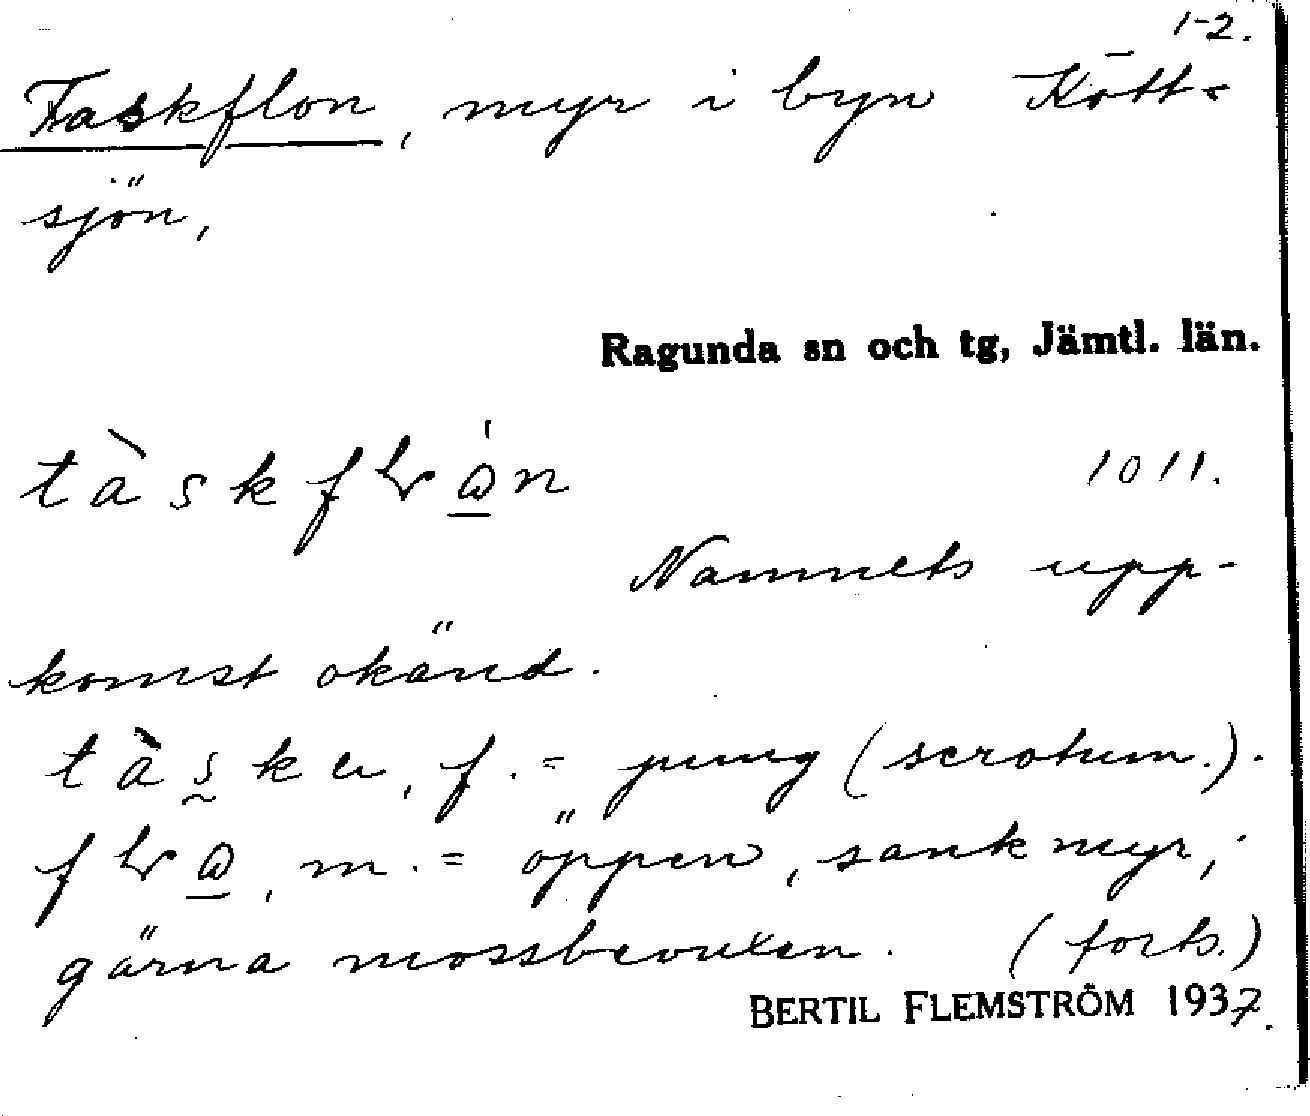 1-2.
Taskflon, myr i byn Kött-
sjön,
Ragunda sn och tg, Jämtl. län.
1011.
Namnets upp-
komst okänd.
f. = pung (scrotum.).
m. = öppen, sank myr,
gärna mossbevuxen. (forts.)
BERTIL FLEMSTRÖM 1937.